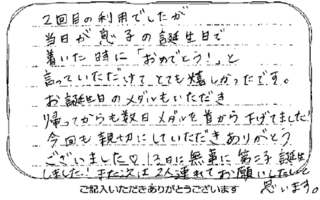 2回目の利用でしたが
当日が息子の誕生日で
着いた時に「おめでとう!」と
言っていただけて、とても嬉しかったです。
お誕生日のメダルもいただき
帰ってからも数日メダルを首から下げてました!
今回も親切にしていただきありがとう
ございました♡ 12日に無事に第二子誕生
しました!また次は2人連れてお願いしたいと
思います。
ご記入いただきありがとうございます